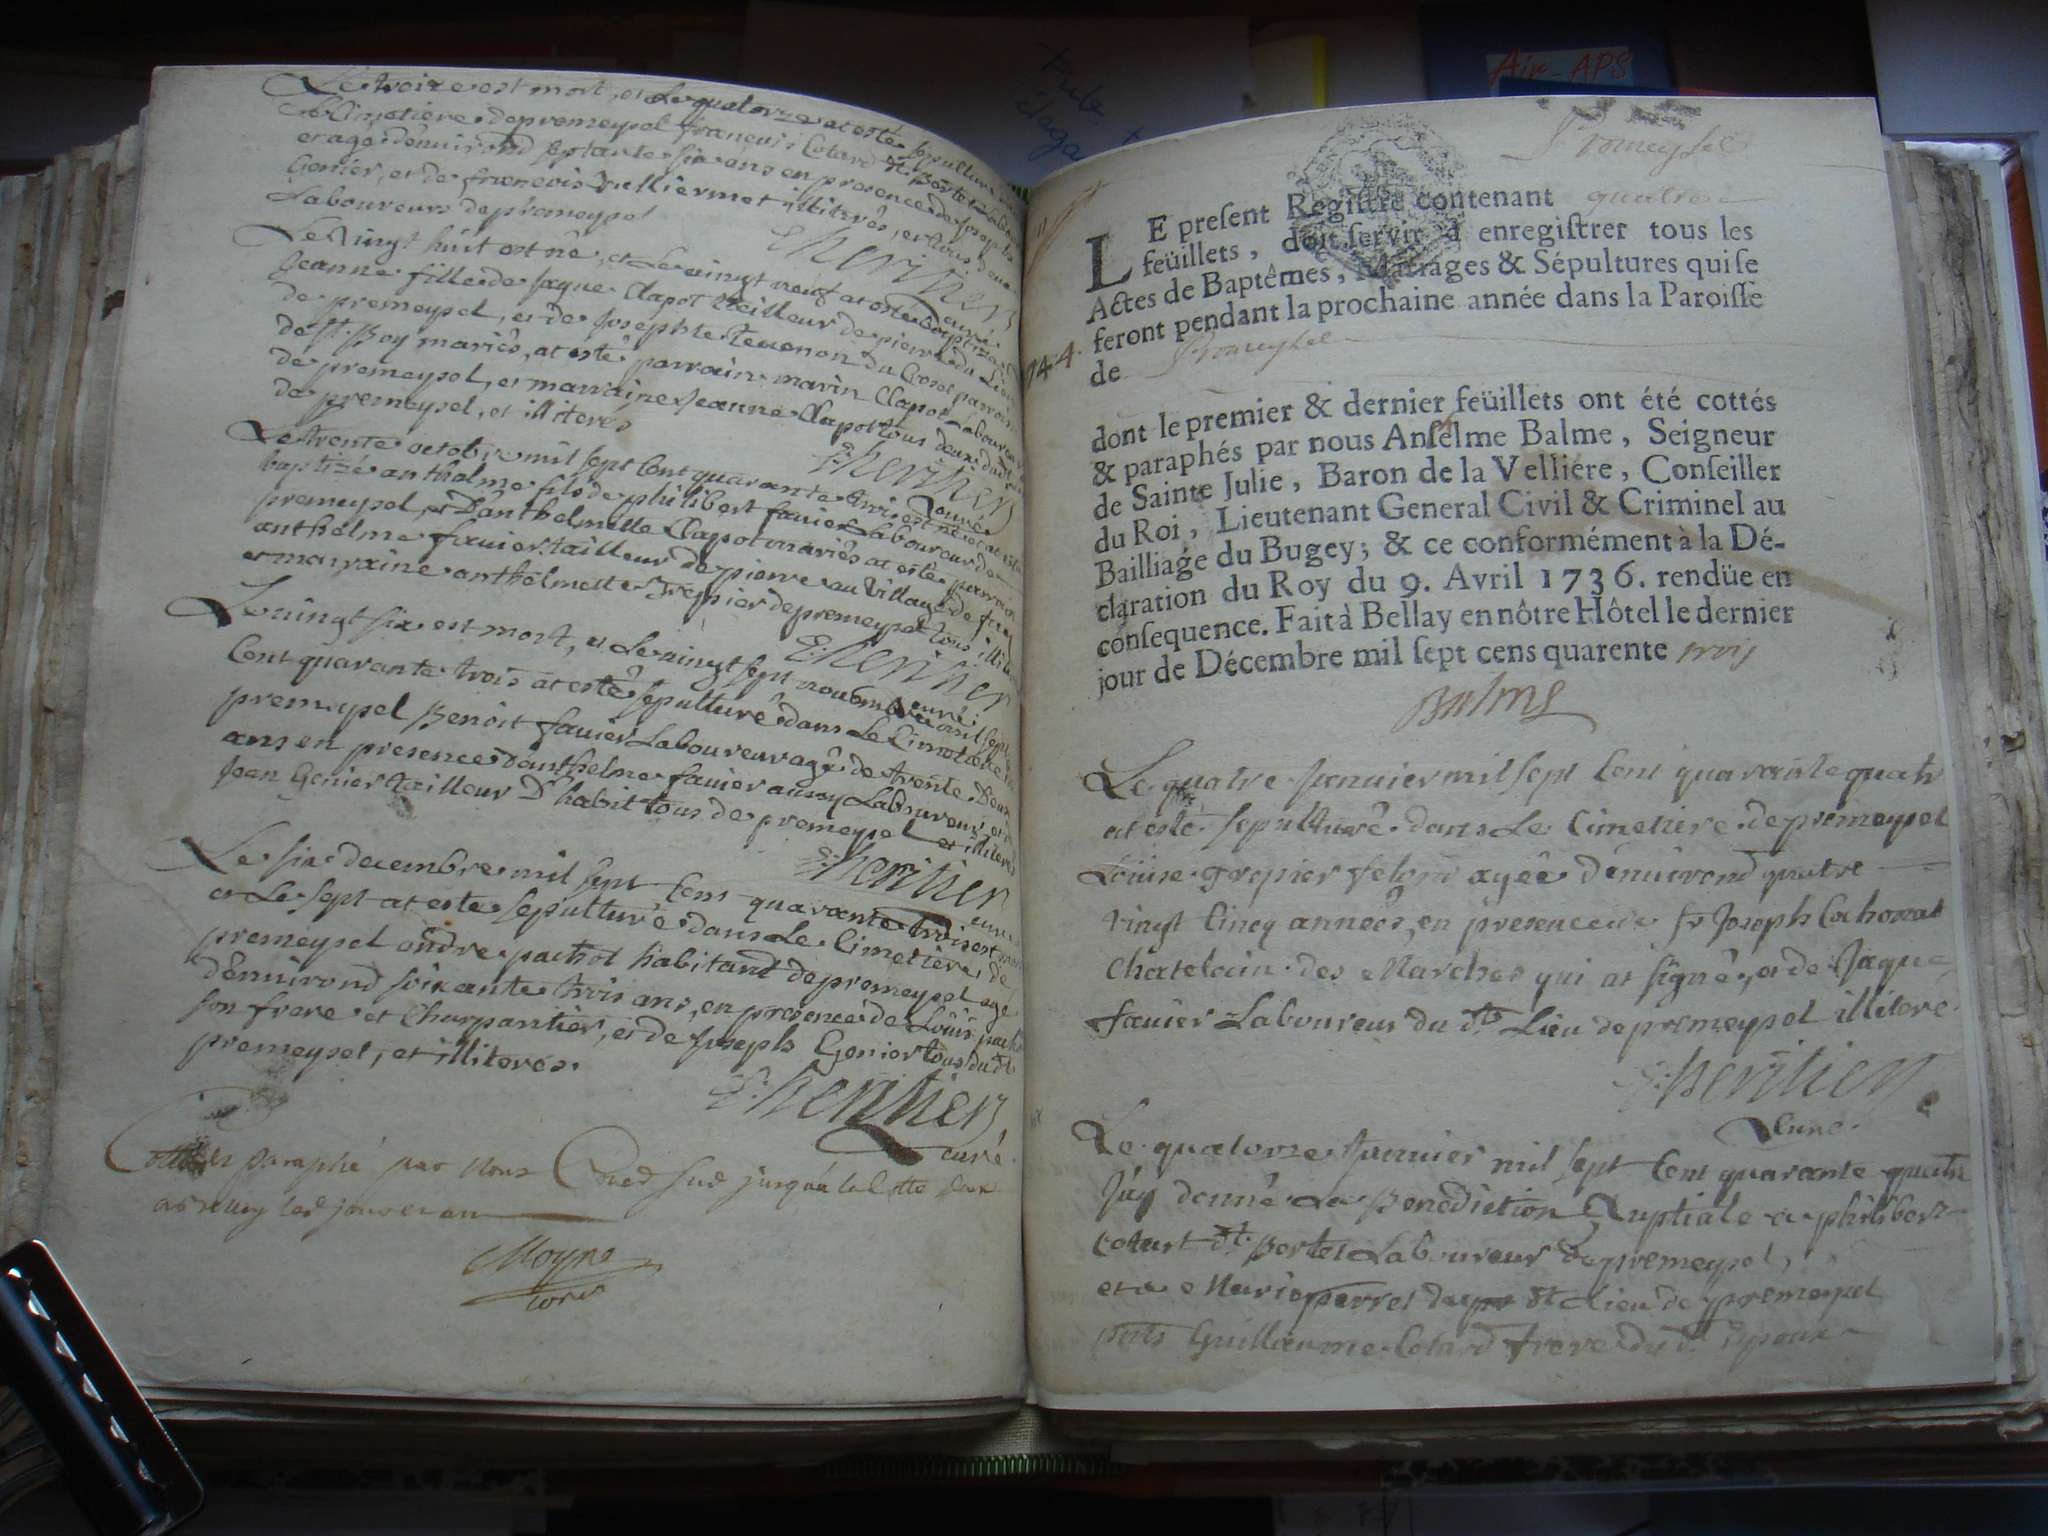 Le treize est mort, et Le quatorze at esté sepulturé
Cimetiere de premeysel francois Cotard dt. Bortet
et agé d'enuirond septante six ans en presence de Joseph
Genier, et de francois Vulliermet illiterés, et tous deux
Laboureurs de premeysel
Lhéritier
curé
Le vingt huit est né, et Le vingt neuf at esté baptizée
Jeanne fille de Jaque Clapot tailleur de pierre du Lieu
de premeysel, et de Josephte teuenon du Crosel parroisse
de st. Boy mariés, at esté parrain marin Clapot Laboureur
de premeysel, et marraine Jeanne Clapot tous deux dudt
de premeysel, et illiterés
Lhéritier
curé
Le trente octobre mil sept Cent quarante trois est né et at esté
baptizé anthelme fils de philibert fauier Laboureur de
premeysel, et D'anthelmette Clapot mariés at esté parrain
anthelme fauier tailleur de pierre au Village de
et marraine anthelmette Trepier de premeysel tous illiterés
Lhéritier
curé
Le vingt six est mort, et Le vingt sept nouembre mil sept
Cent quarante trois at esté sepulturé dans Le Cimetiere de
premeysel Benoit fauier Laboureur agé de trente Deux
ans en presence d'anthelme fauier aussy Laboureur, et de
Jean Genier tailleur D'habit tous de premeysel et illiterés
Lhéritier
curé
Le six decembre mil sept Cent quarante trois est mort
et Le sept at esté sepulturé dans Le Cimetiere de
premeysel andre pachot habitand de premeysel agé
d'enuirond soixante trois ans, en presence de Loüis pachot
son frere et Charpantier, et de Joseph Genier tous du dt
premeysel, et illiterés.
Lhéritier
curé
Cotté et paraphé par Nous Curé jusqu'a
Moyne
Premeysel
LE present Registre contenant quatre
feüillets, doit servir à enregistrer tous les
Actes de Baptêmes, Mariages & Sépultures qui se
feront pendant la prochaine année dans la Paroisse
1744.
de Premeysel
dont le premier & dernier feüillets ont été cottés
& paraphés par nous Anselme Balme, Seigneur
de Sainte Julie, Baron de la Velliére, Conseiller
du Roi, Lieutenant General Civil & Criminel au
Bailliage du Bugey; & ce conformément à la Dé-
claration du Roy du 9. Avril 1736. rendüe en
consequence. Fait à Bellay en nôtre Hôtel le dernier
jour de Décembre mil sept cens quarente trois
Balme
Le quatre Januier mil sept Cent quarante quatr
at esté sepulturé dans Le Cimetiere de premeysel
Loüise grepier agée d'enuirond quatre
vingt Cincq années, en presence de sr Joseph Cahouat
Chatelain des Marches qui at signé, et de Jaque
fauier Laboureur du dt Lieu de premeysel illiteré.
Lhéritier
Curé.
Le quatorze Januier mil sept Cent quarante quatre
J'ay donné La Benediction Nuptiale a philibert
Cotart dt. Bortet Laboureur de premeysel,
et a Marie perret de dt Lieu de premeysel
pnts Guilleaume Cotard frere du dt. Epoux